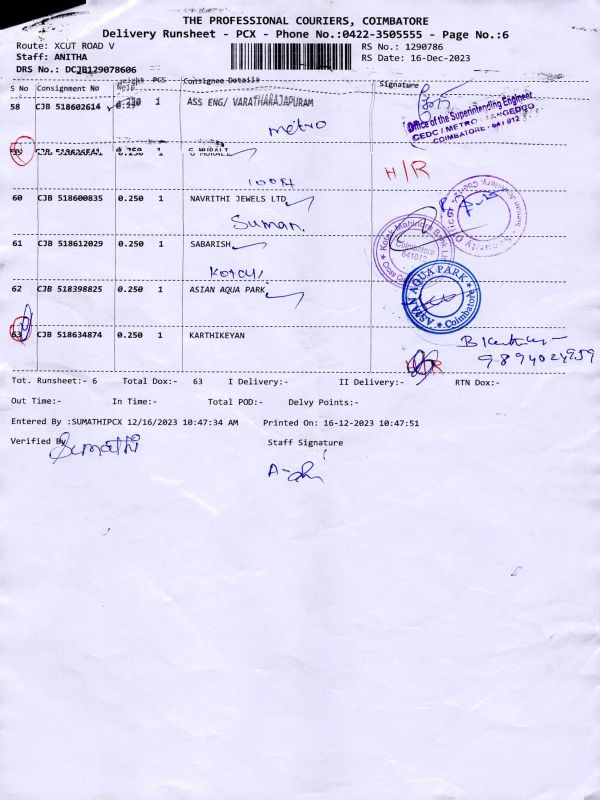 THE PROFESSIONAL COURIERS, COIMBATORE
Delivery Runsheet - PCX - Phone No.:0422-3505555 - Page No.:6
Route: XCUT ROAD V RS No.: 1290786
Staff: ANITHA RS Date: 16-Dec-2023
DRS No.: DCJB129078606
S No Consignment No PCS Consignee Details Signature
58 CJB 518602614 1 ASS ENG/ VARATHARAJAPURAM
metro
Office of the Superintending Engineer
CEDC / METRO / TANGEDCO
COIMBATORE - 641 012
0.250 1 G MURALI
H/R
60 CJB 518600835 0.250 1 NAVRITHI JEWELS LTD
Suman.
61 CJB 518612029 0.250 1 SABARISH
Kotak Mahindra Bank Ltd
Coimbatore
641012
62 CJB 518398825 0.250 1 ASIAN AQUA PARK
ASIAN AQUA PARK
Coimbatore
63 CJB 518634874 0.250 1 KARTHIKEYAN
Tot. Runsheet:- 6 Total Dox:- 63 I Delivery:- II Delivery:- RTN Dox:-
Out Time:- In Time:- Total POD:- Delvy Points:-
Entered By :SUMATHIPCX 12/16/2023 10:47:34 AM Printed On: 16-12-2023 10:47:51
Verified By Staff Signature
Sumathi